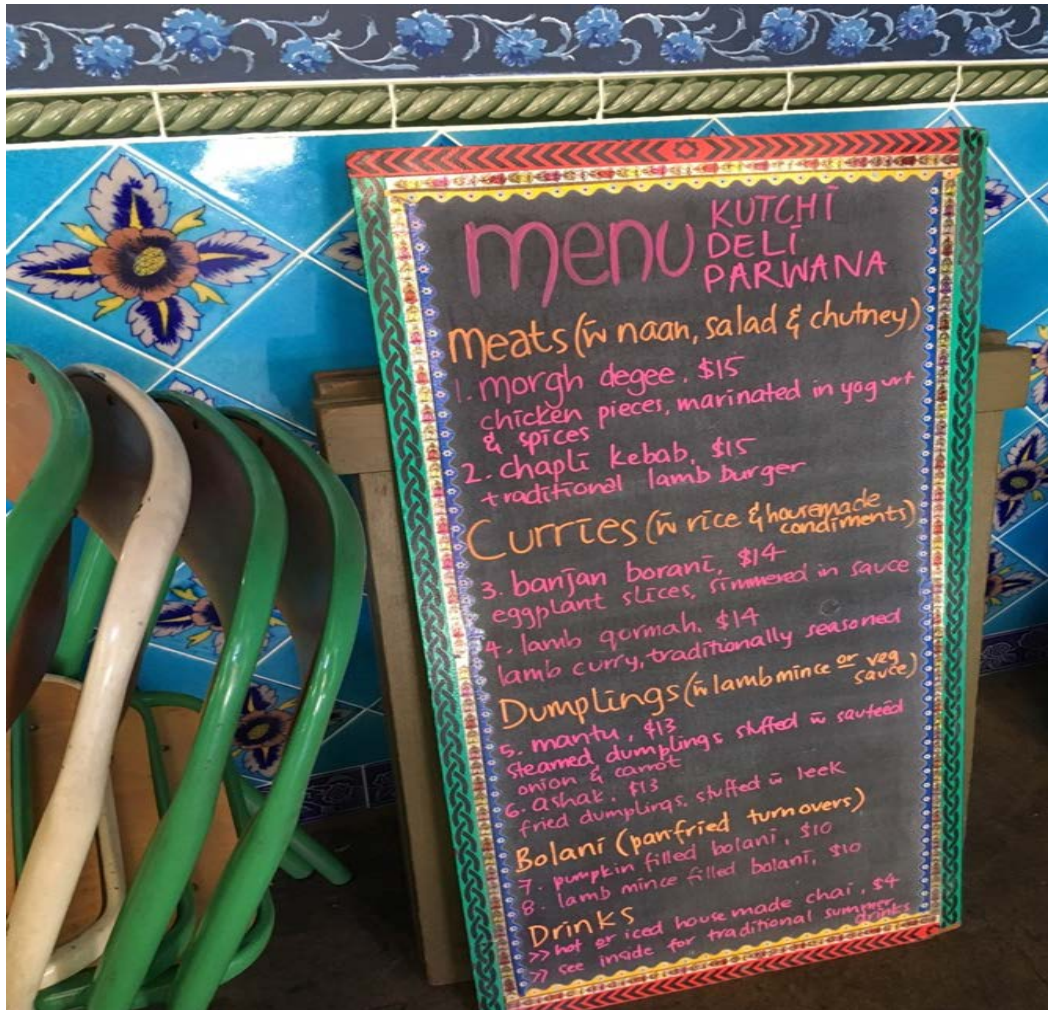 menu KUTCHI
DELI
PARWANA
Meats (w̄ naan, salad & chutney)
1. morgh degee. $15
chicken pieces, marinated in yogurt
& spices
2. chapli kebab, $15
traditional lamb burger
Curries (w̄ rice & housemade
condiments)
3. banjan borani, $14
eggplant slices, simmered in sauce
4. lamb qormah, $14
lamb curry, traditionally seasoned
Dumplings (w̄ lamb mince or veg
sauce)
5. mantu, $13
steamed dumplings stuffed w̄ sauteéd
onion & carrot
6. ashak. $13
fried dumplings, stuffed w̄ leek
Bolani (panfried turnovers)
7. pumpkin filled bolani, $10
8. lamb mince filled bolani, $10
Drinks
>> hot or iced house made chai, $4
>> see inside for traditional summer
drinks